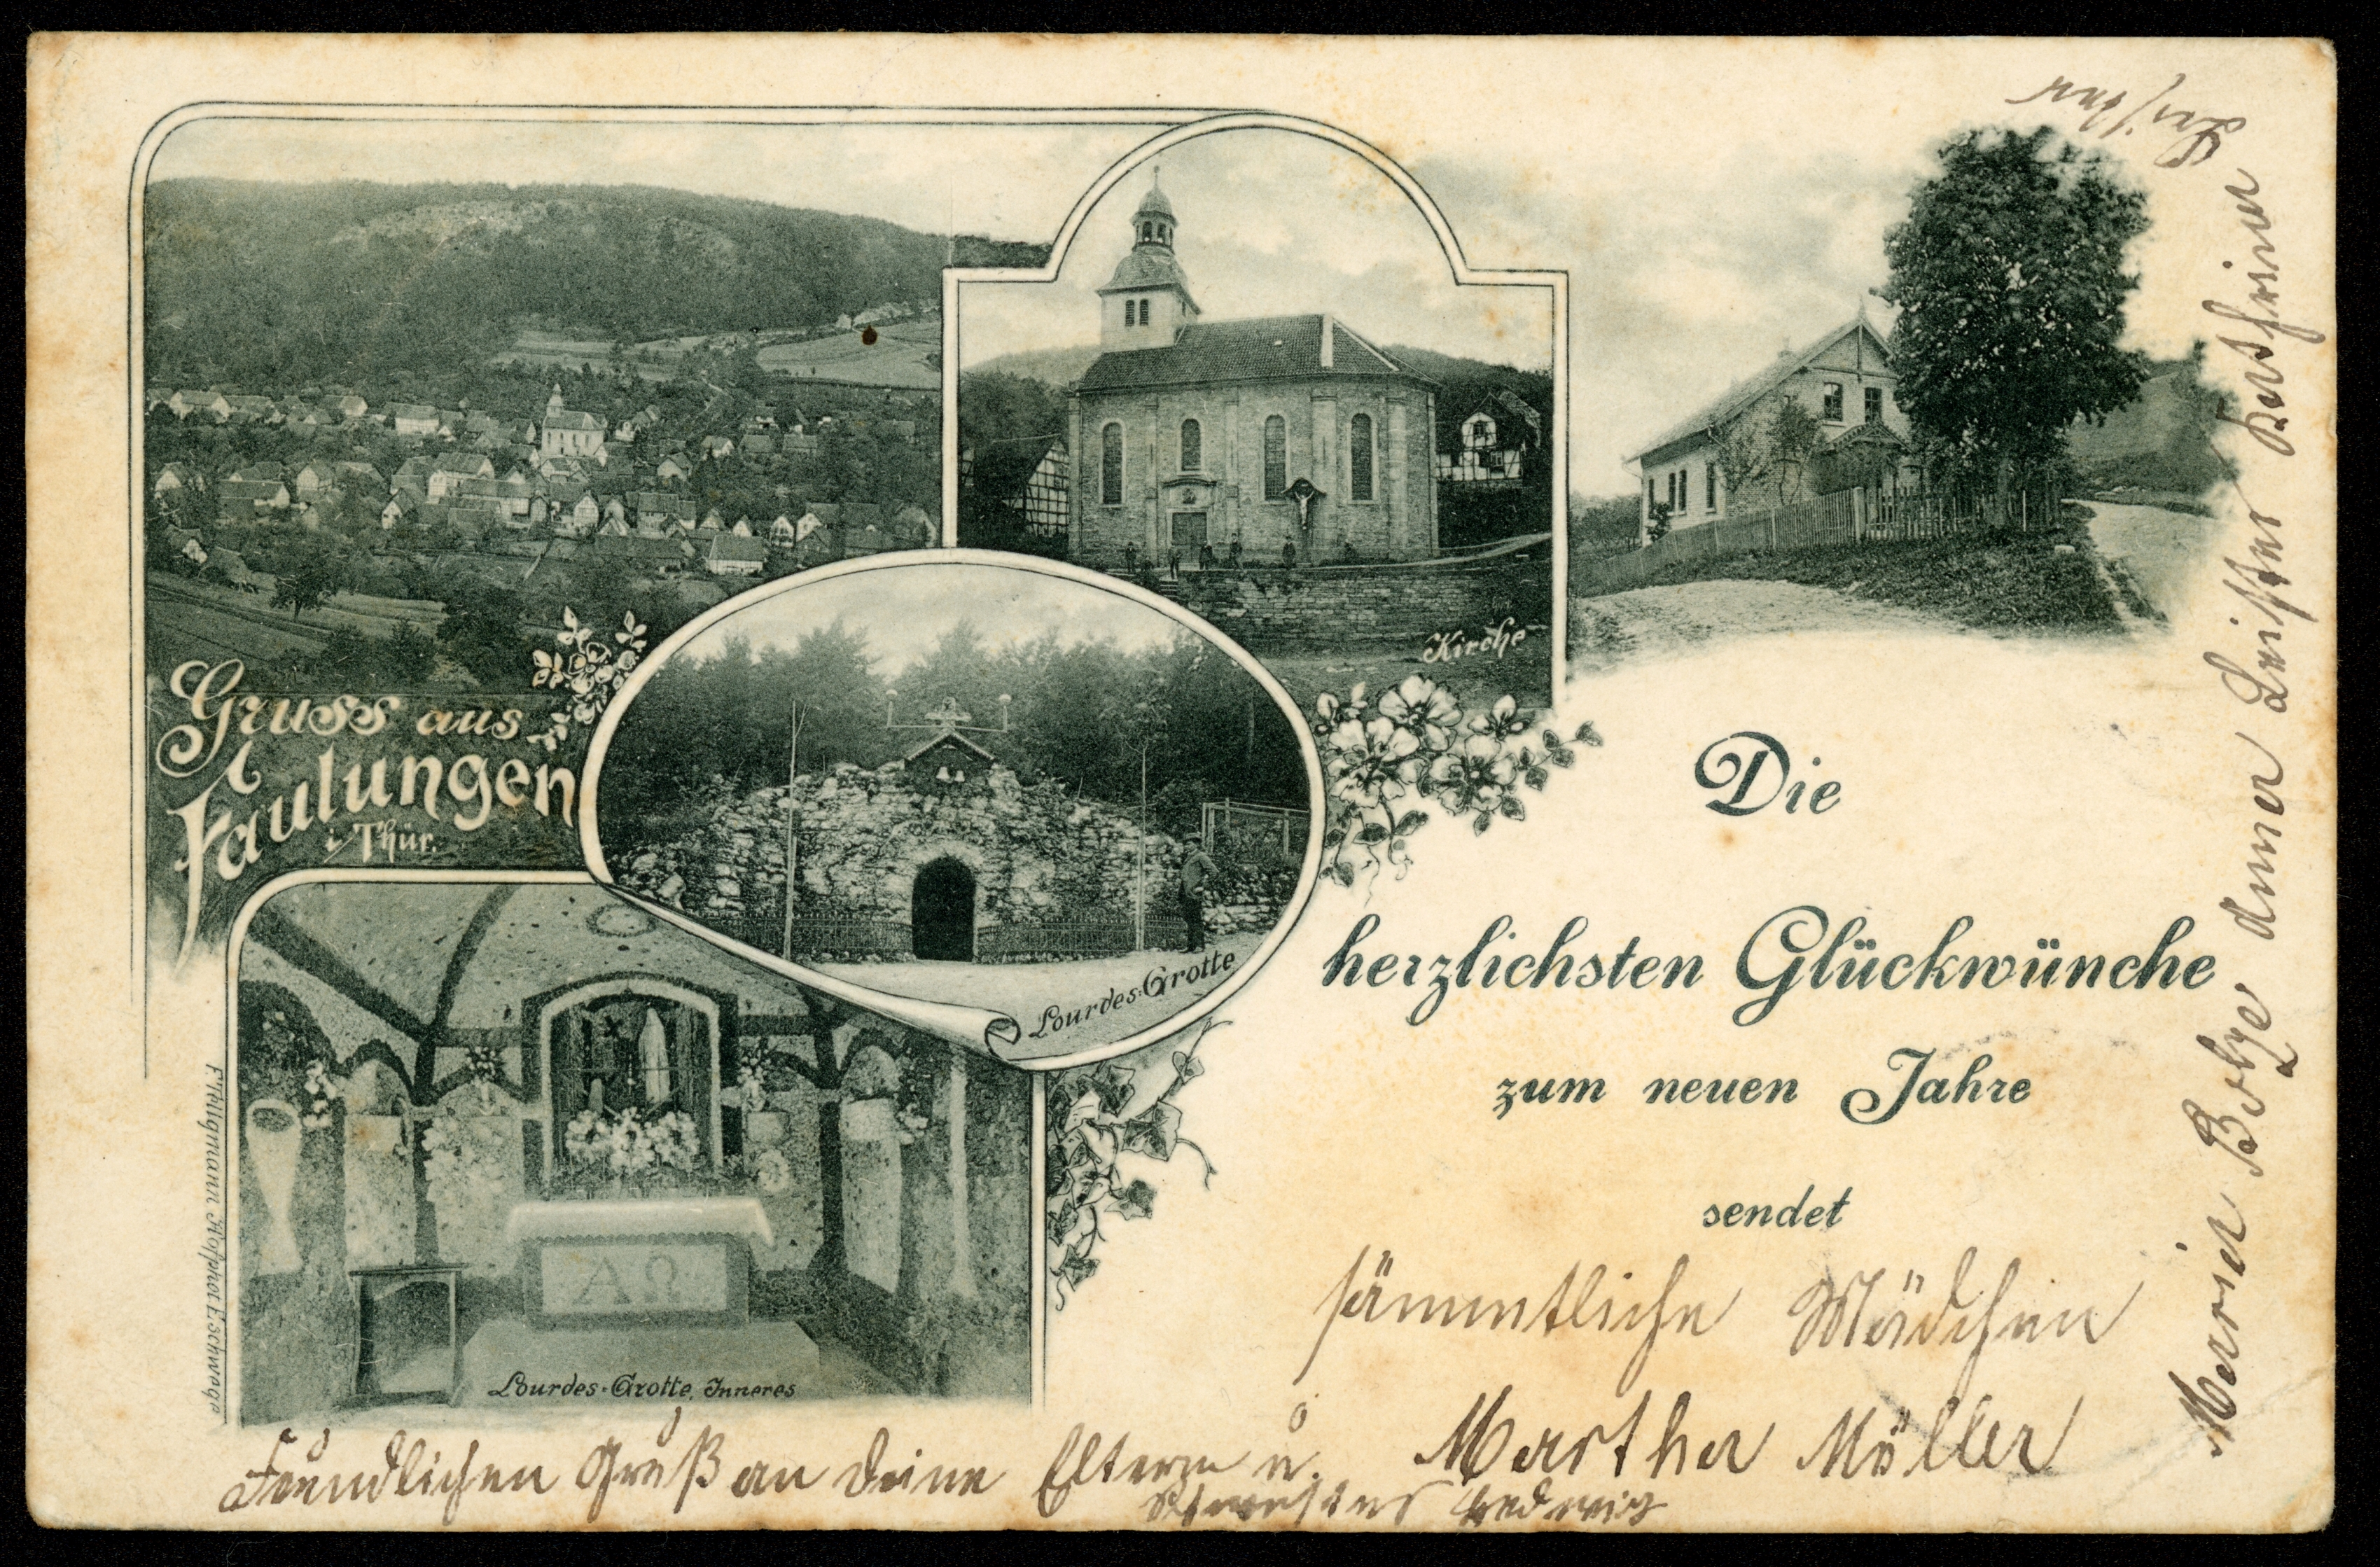 Gruss aus
Faulungen
i. Thür.
Kirche
Lourdes-Grotte
Lourdes-Grotte, Inneres
Die
herzlichsten Glückwünche
zum neuen Jahre
sendet
sämmtliche Mädchen
Martha Möller
Freundlichen Gruß an deine Eltern u.
Hedwig
Maria Anna